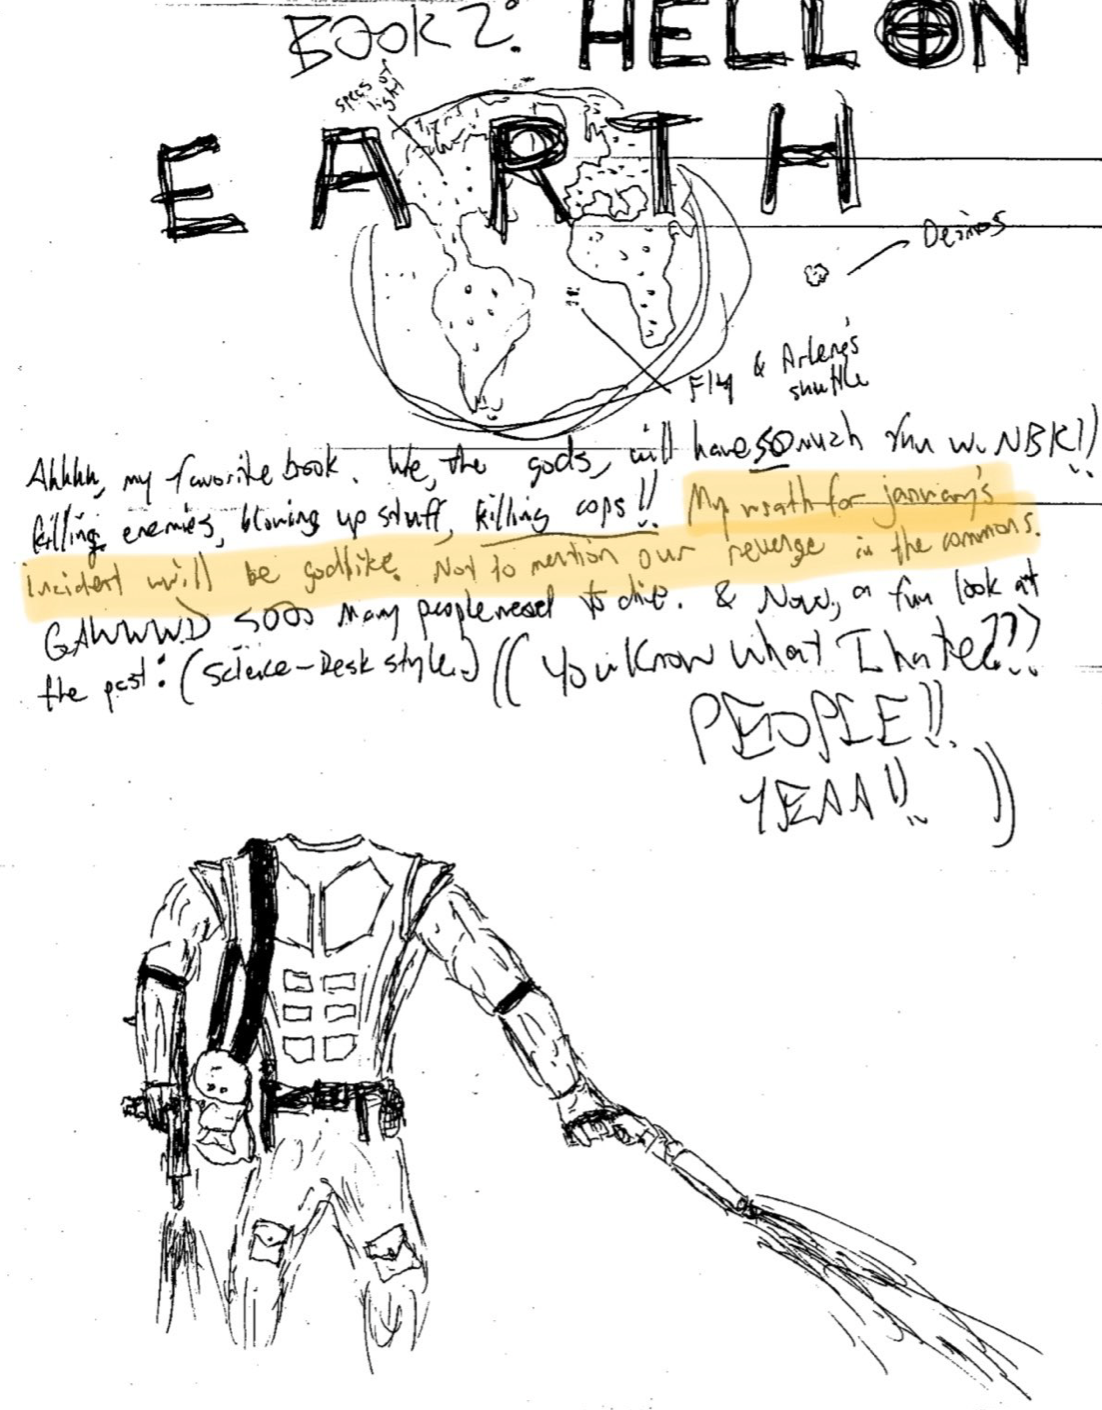 BOOK 2: HELL ON
EARTH
specs of
light
Deimos
Fly & Arlene's
shuttle
Ahhhh, my favorite book. We, the gods, will have so much fun w. NBK!!
killing enemies, blowing up stuff, killing cops!! My wrath for january's
incident will be godlike. Not to mention our revenge in the commons.
GAWWWD sooo many people need to die. & Now, a fun look at
the past: (Science-Desk style) (( You know what I hate???
PEOPLE!!
YEAA!! ))